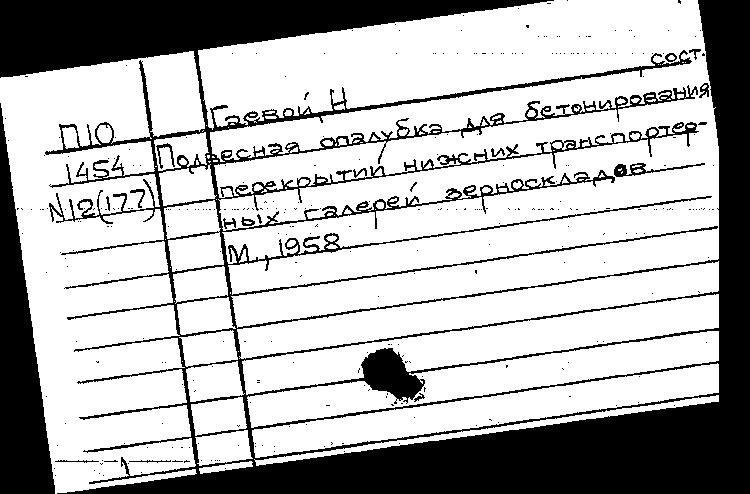 П10
1454
N12(177)
Гаевой, Н , сост.
Подвесная опалубка для бетонирования
перекрытий нижних транспортер-
ных галерей зерноскладов.
М., 1958
1